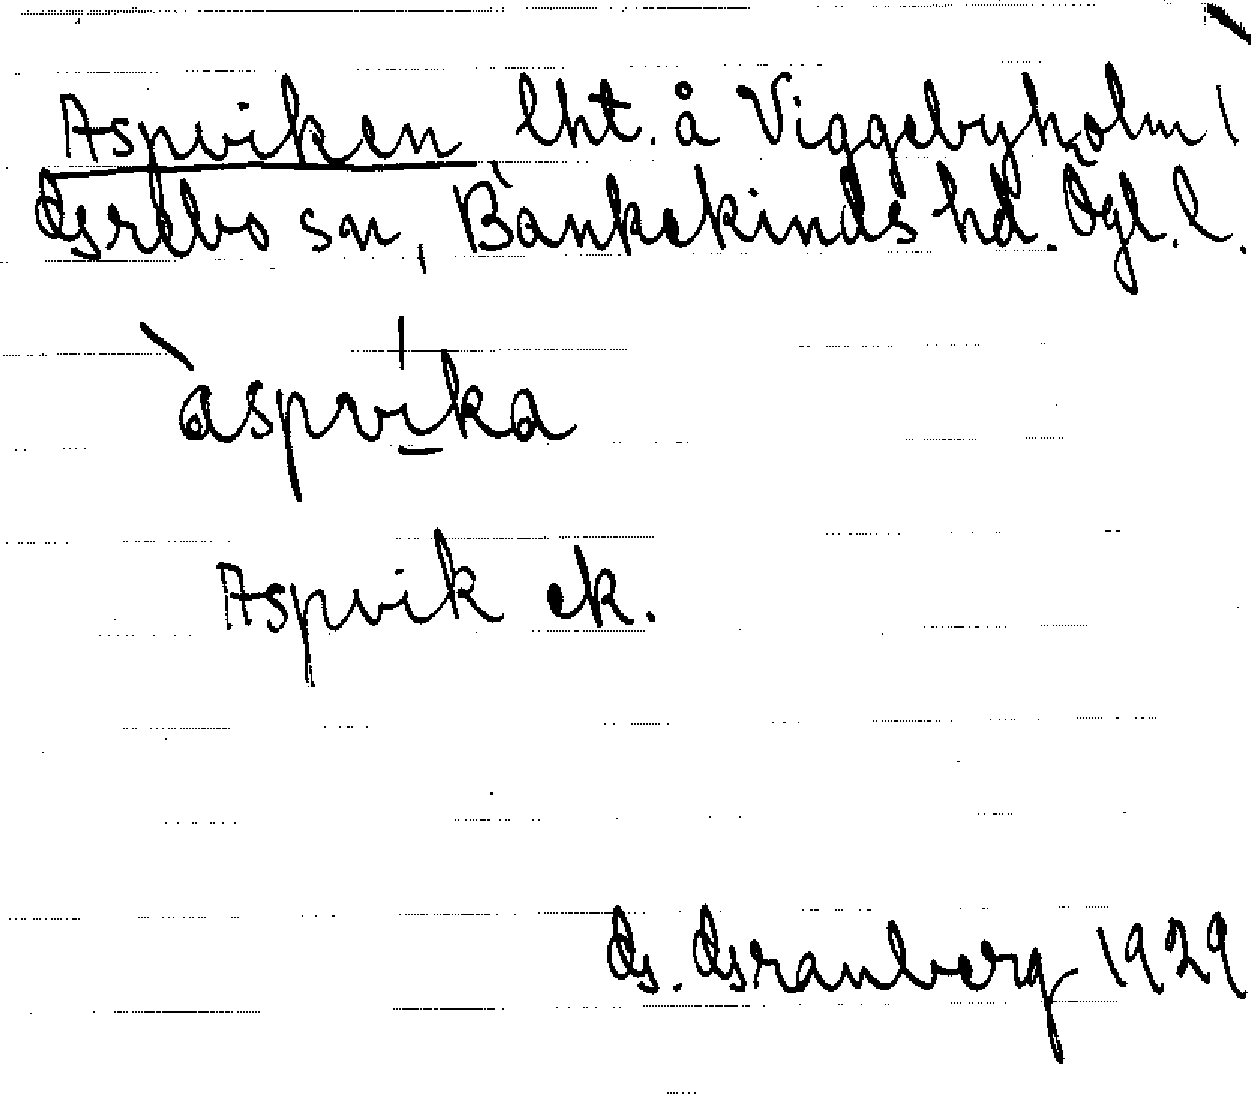 Aspviken lht. å Viggebyholm i
Grebo sn, Bankekinds hd. Ögl. l.
aspvika
Aspvik ek.
G. Granberg 1929